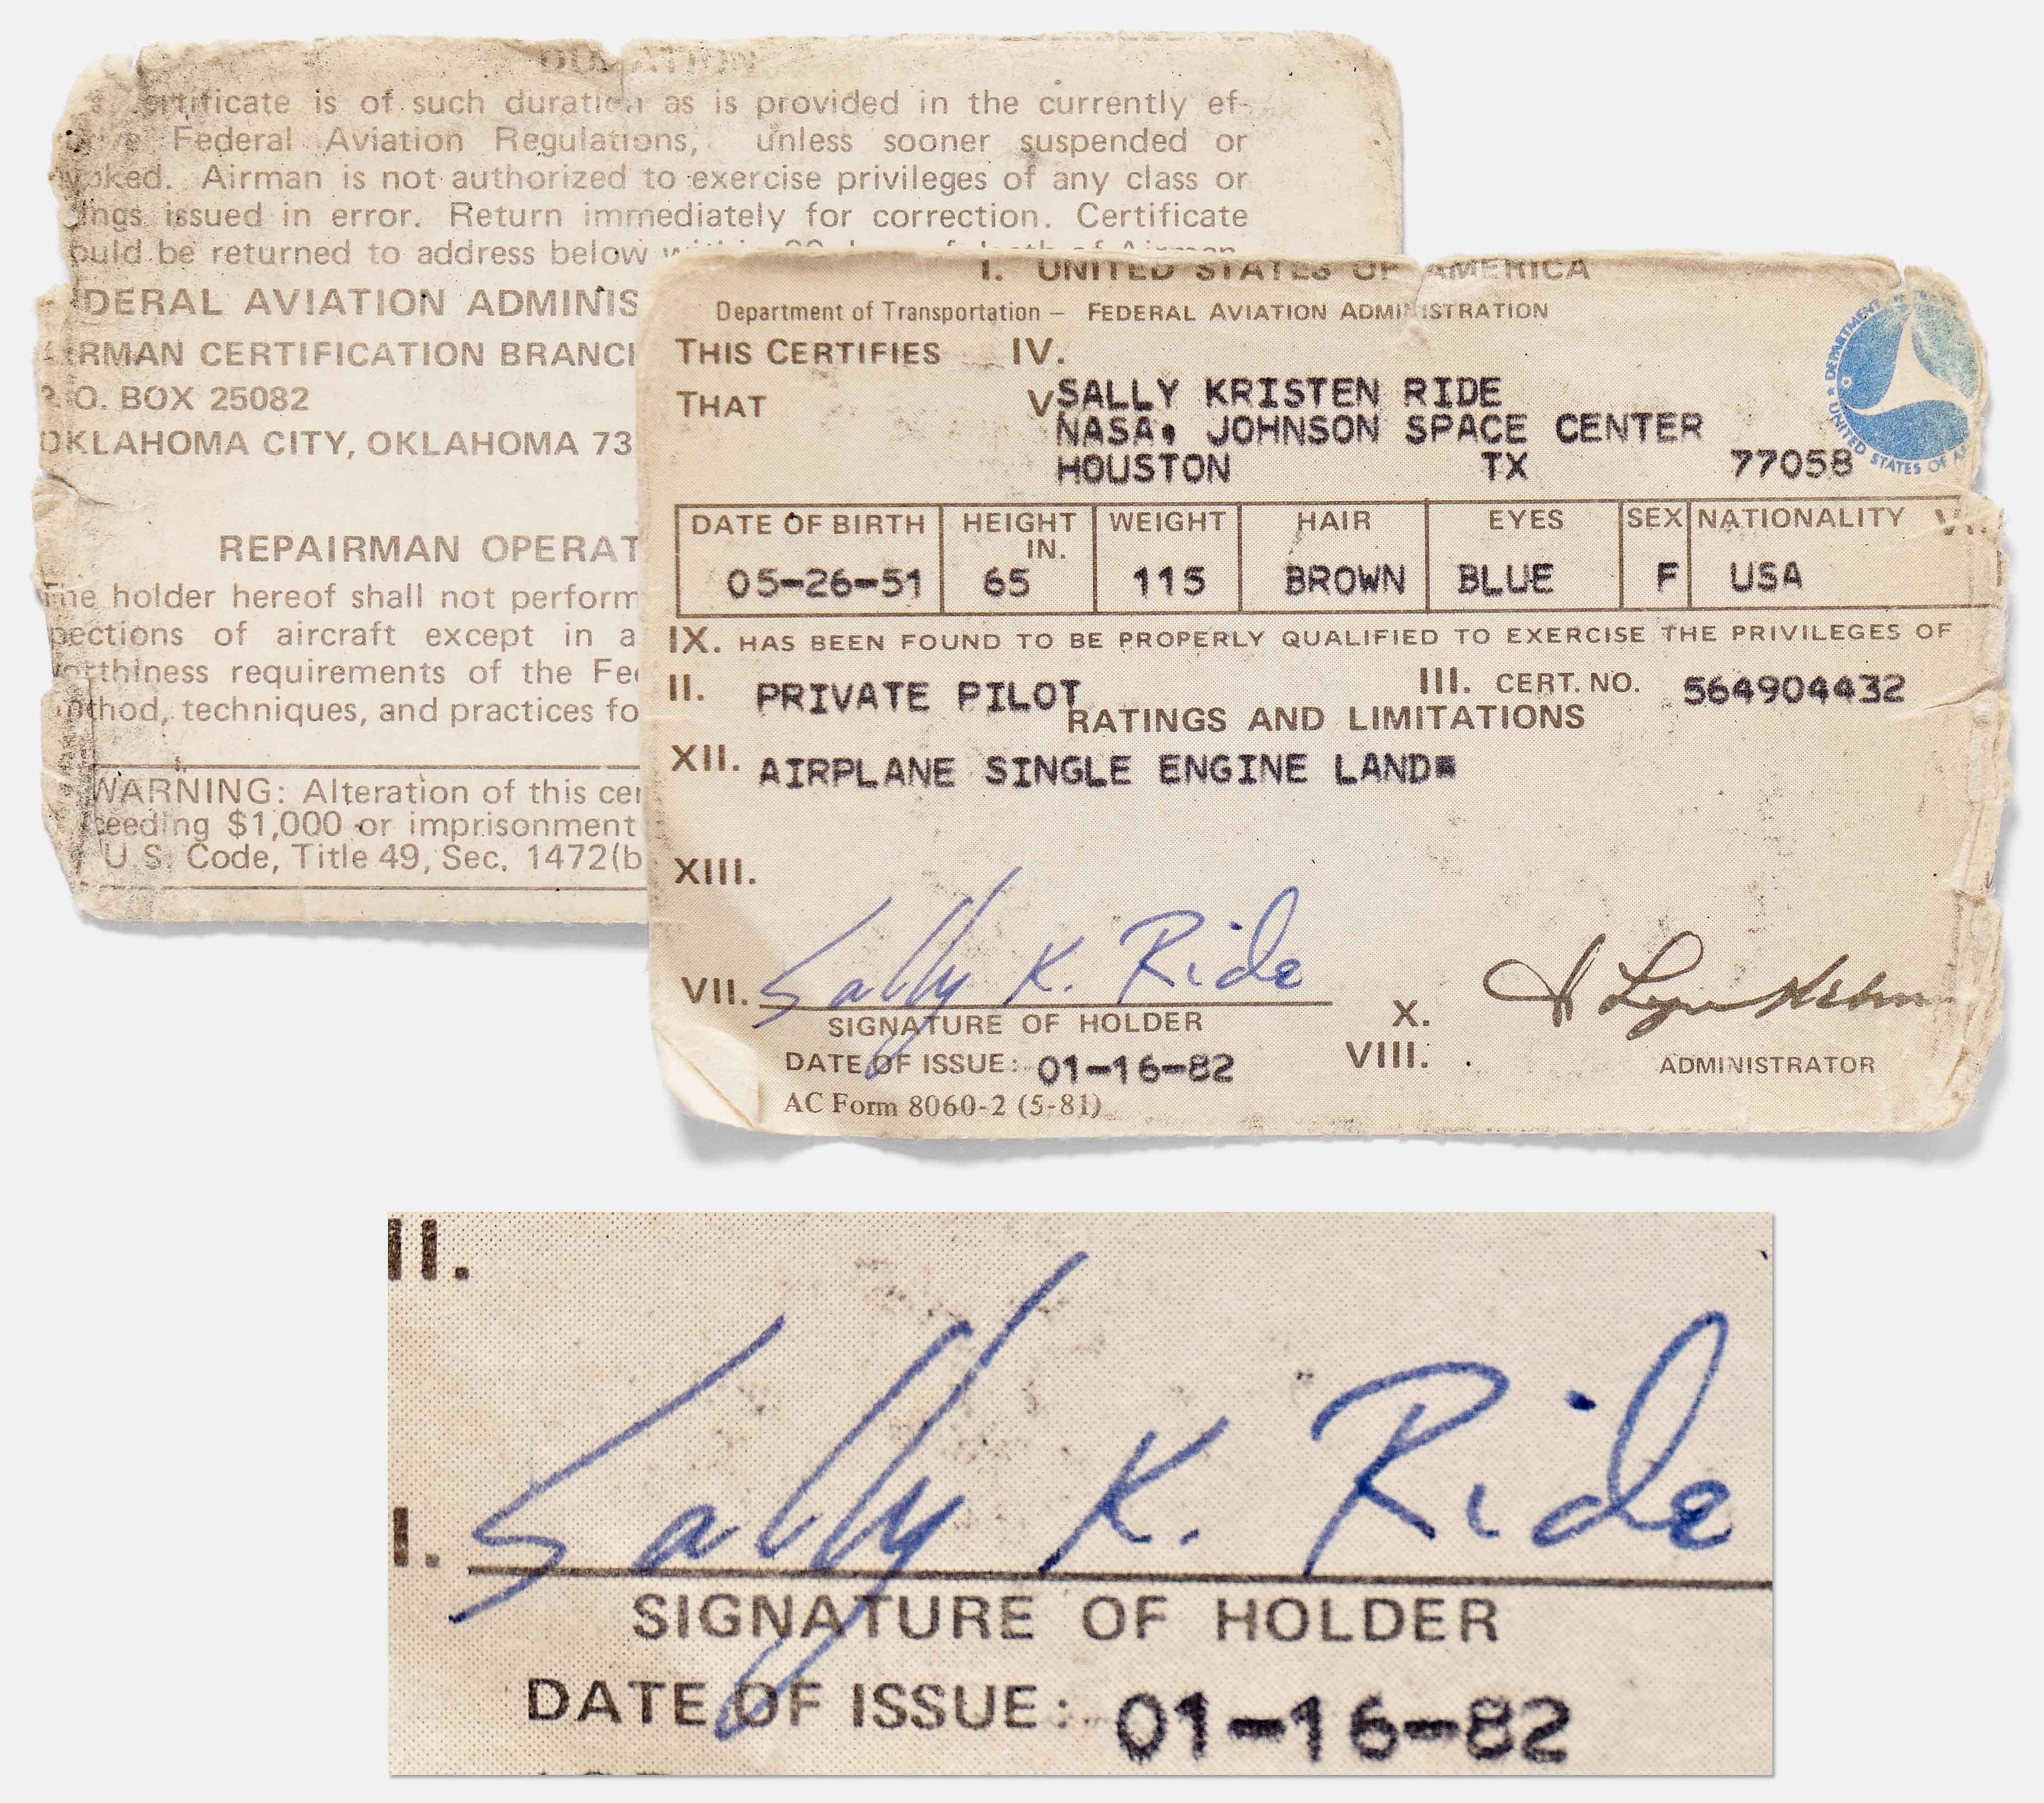 DURATION
certificate is of such duration as is provided in the currently ef-
Federal Aviation Regulations, unless sooner suspended or
voked. Airman is not authorized to exercise privileges of any class or
ings issued in error. Return immediately for correction. Certificate
ould be returned to address below within 30 days of death of Airman.
DERAL AVIATION ADMINIS
IRMAN CERTIFICATION BRANC
P.O. BOX 25082
OKLAHOMA CITY, OKLAHOMA 73
REPAIRMAN OPERAT
The holder hereof shall not perform
pections of aircraft except in a
worthiness requirements of the Fe
method, techniques, and practices fo
WARNING: Alteration of this cer
ceeding $1,000 or imprisonment
U.S. Code, Title 49, Sec. 1472(b
I. UNITED STATES OF AMERICA
Department of Transportation – FEDERAL AVIATION ADMINISTRATION
THIS CERTIFIES IV.
THAT V SALLY KRISTEN RIDE
NASA, JOHNSON SPACE CENTER
HOUSTON TX 77058
DEPARTMENT
UNITED STATES OF A
DATE OF BIRTH HEIGHT IN. WEIGHT HAIR EYES SEX NATIONALITY VI.
05-26-51 65 115 BROWN BLUE F USA
IX. HAS BEEN FOUND TO BE PROPERLY QUALIFIED TO EXERCISE THE PRIVILEGES OF
II. PRIVATE PILOT III. CERT. NO. 564904432
RATINGS AND LIMITATIONS
XII. AIRPLANE SINGLE ENGINE LAND
XIII.
VII. Sally K. Ride
SIGNATURE OF HOLDER X.
DATE OF ISSUE: 01-16-82 VIII. ADMINISTRATOR
AC Form 8060-2 (5-81)
II.
I. Sally K. Ride
SIGNATURE OF HOLDER
DATE OF ISSUE: 01-16-82